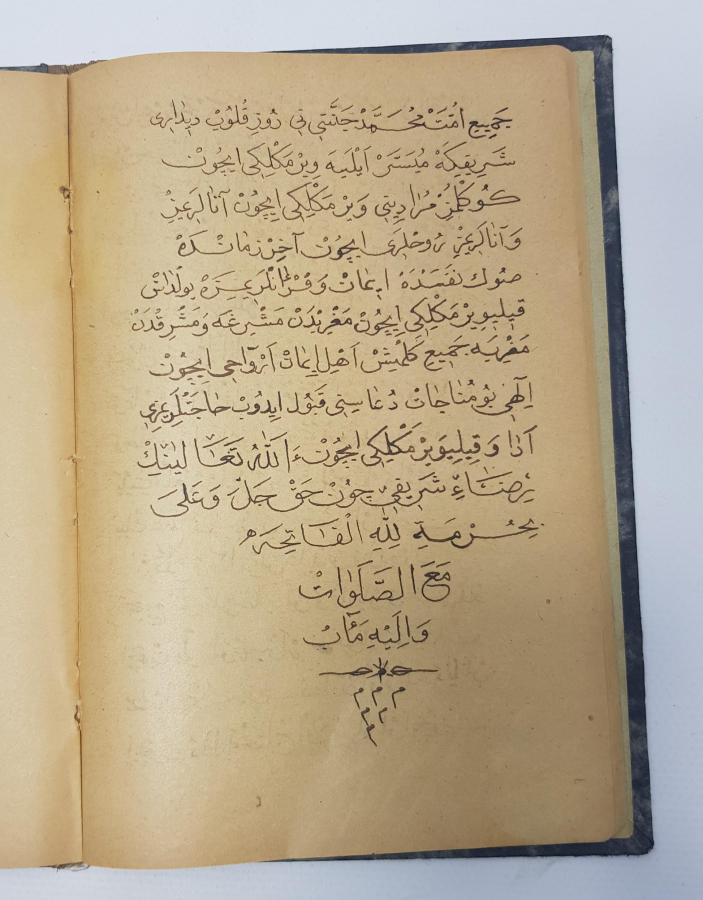 جَمِيعِ اُمَّتْ مُحَمَّدْ جَنَّتِى نِى رُوزِ قُلُوبْ دِيدَارِى
شَرِيفِكَهْ مُيَسَّرْ اَيْلَيَهْ وِيرْمَكْلِكِى ايچُونْ
كُوكْلُمُزْ مُرَادِينِى وِيرْمَكْلِكِى اِيچُونْ آتَالَرِمِزْ
وَ آنَالَرِمِزْ رُوحْلَرِى ايچُونْ آخِرْ زَمَانْدَهْ
صُوڭ نَفَسْدَهْ اِيمَانْ وَ قُرْآنْلَرِيمِزَهْ يُولْدَاشْ
قِيلِيوِيرْمَكْلِكِى اِيچُونْ مَغْرِبْدَنْ مَشْرِغَه وَ مَشْرِقْدَنْ
مَغْرِبَه جَمِيعِ كَلْمِيشْ اَهْلِ اِيمَانْ اَرْوَاحِى ايچُونْ
اِلٰهِى بُو مُنَاجَاتْ دُعَاسِينِى قَبُولْ ايدُوبْ حَاجَتْلَرِيمِزِى
اَدَا وَ قِيلِيوِيرْمَكْلِكِى ايچُونْ اَللّٰهُ تَعَالَينِكْ
رِضَاءِ شَرِيفِى چُونْ حَقْ جَلَّ وَعَلَىَ
بِحُرْمَةِ لِلّٰهِ الْفَاتِحَه
مَعَ الصَّلَوَاتْ
وَ اِلَيْهِ مَآبْ